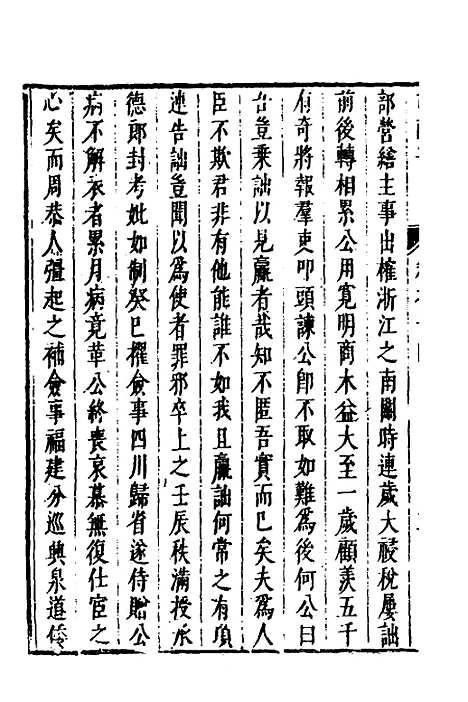 部營繕主事出榷浙江之南關時連歲大祲稅屢詘
前後轉相累公用寬明商木益大至一歲顧羨五千
有奇將報羣吏叩頭諫公卽不取如難為後何公曰
吿豈乗詘以見羸者哉知不匿吾實而已矣夫為人
臣不欺君非有他能誰不如我且羸詘何常之有項
連告詘豈聞以為使者罪邪卒上之壬辰秩滿授承
德郎封考妣如制癸巳擢僉事四川歸省遂侍贈公
病不解衣者累月病竟革公終喪哀慕無復仕宦之
心矣而周恭人彊起之補僉事福建分巡興泉道倭